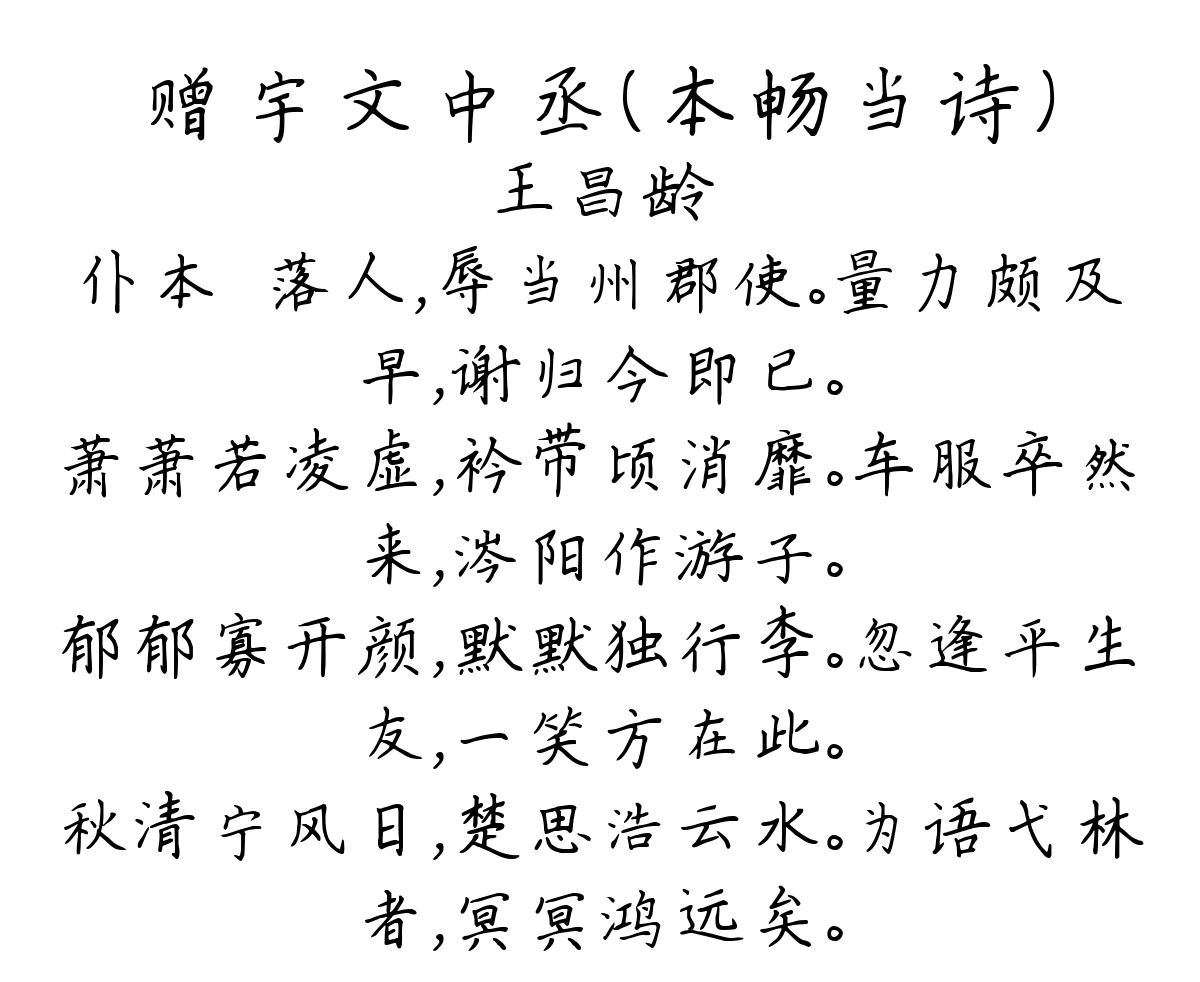 赠宇文中丞(本畅当诗)
王昌龄
仆本 落人,辱当州郡使。量力颇及
早,谢归今即已。
萧萧若凌虚,衿带顷消靡。车服卒然
来,涔阳作游子。
郁郁寡开颜,默默独行李。忽逢平生
友,一笑方在此。
秋清宁风日,楚思浩云水。为语弋林
者,冥冥鸿远矣。